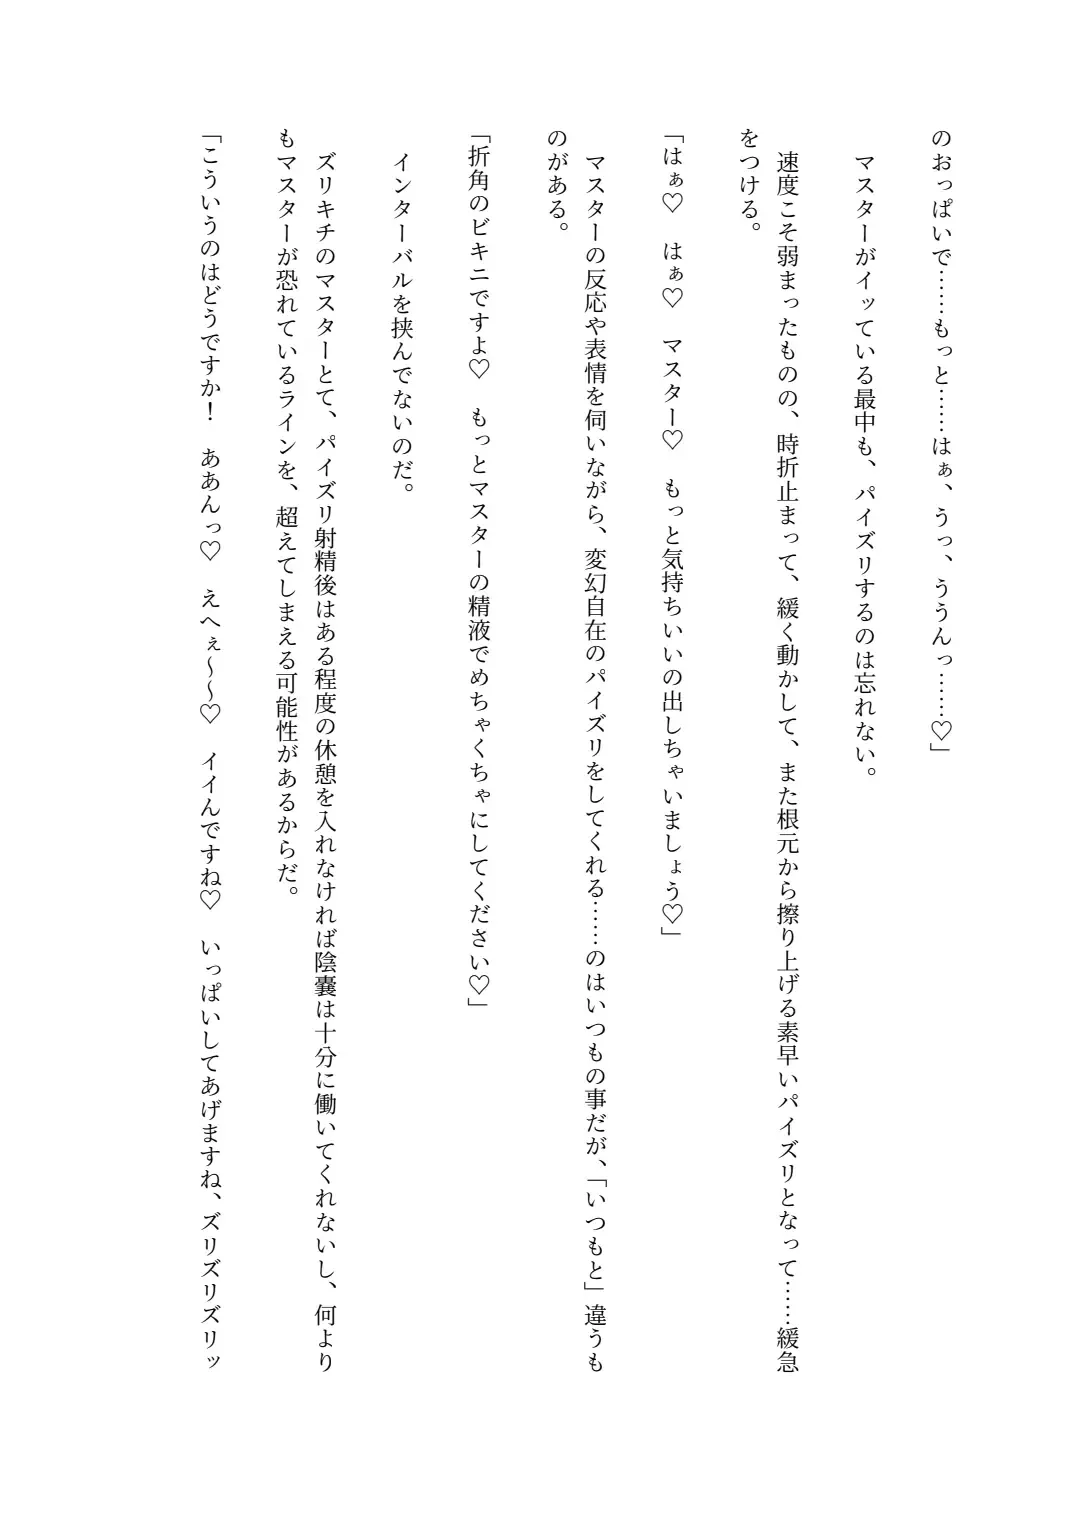 のおっぱいで……もっと……はぁ、うっ、ううんっ……♡」
マスターがイッている最中も、パイズリするのは忘れない。
速度こそ弱まったものの、時折止まって、緩く動かして、また根元から擦り上げる素早いパイズリとなって……緩急
をつける。
「はぁ♡　はぁ♡　マスター♡　もっと気持ちいいの出しちゃいましょう♡」
マスターの反応や表情を伺いながら、変幻自在のパイズリをしてくれる……のはいつもの事だが、「いつもと」違うも
のがある。
「折角のビキニですよ♡　もっとマスターの精液でめちゃくちゃにしてください♡」
インターバルを挟んでないのだ。
ズリキチのマスターとて、パイズリ射精後はある程度の休憩を入れなければ陰嚢は十分に働いてくれないし、何より
もマスターが恐れているラインを、超えてしまえる可能性があるからだ。
「こういうのはどうですか！　ああんっ♡　えへぇ～～♡　イイんですね♡　いっぱいしてあげますね、ズリズリズリッ